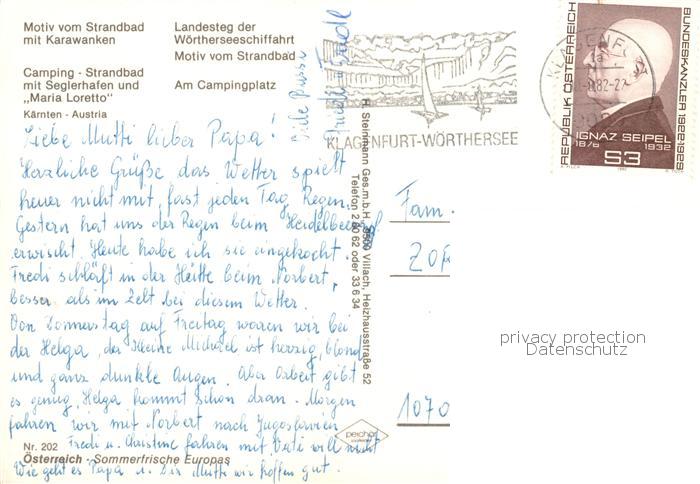 Motiv vom Strandbad
mit Karawanken
Landesteg der
Wörtherseeschiffahrt
Motiv vom Strandbad
Camping - Strandbad
mit Seglerhafen und
„Maria Loretto"
Am Campingplatz
Kärnten - Austria
Liebe Mutti lieber Papa!
Herzliche Grüße das Wetter spielt
heuer nicht mit, fast jeden Tag Regen.
Gestern hat uns der Regen beim
erwischt. Heute habe ich sie eingekocht.
Fredi schläft in der Hütte beim Norbert,
besser als im Zelt bei diesem Wetter.
Von Donnerstag auf Freitag waren wir bei
der Helga, der kleine Michael ist herzig, blond
und ganz dunkle Augen. Aber Arbeit gibt
es genug, Helga kommt schon dran. Morgen
fahren wir mit Norbert nach Jugoslawien
Fredi u. Christine fahren mit Vati will nicht
Wie geht es Papa u. Dir Mutti wir hoffen gut.
Viele Bussi
Nr. 202
Österreich - Sommerfrische Europas
H. Steinmann Ges.m.b.H., 9500 Villach, Heizhausstraße 52
Telefon 2 80 62 oder 33 6 34
KLAGENFURT-WÖRTHERSEE
REPUBLIK ÖSTERREICH
BUNDESKANZLER 1922-1929
IGNAZ SEIPEL
1876 1932
S3
Fam.
1070
privacy protection
Datenschutz